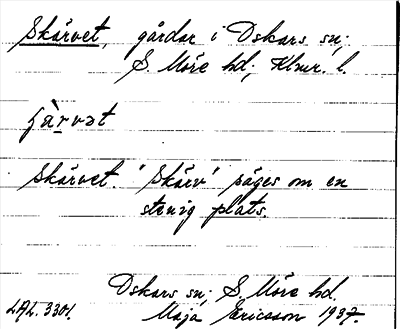 Skärvet, gårdar i Oskars sn;
S. Möre hd; Klmr. l.
ʃärvət
Skärvet. 'Skärv' säges om en
stenig plats.
Oskars sn; S. Möre hd.
LAL. 3301. Maja Ericsson 1937.